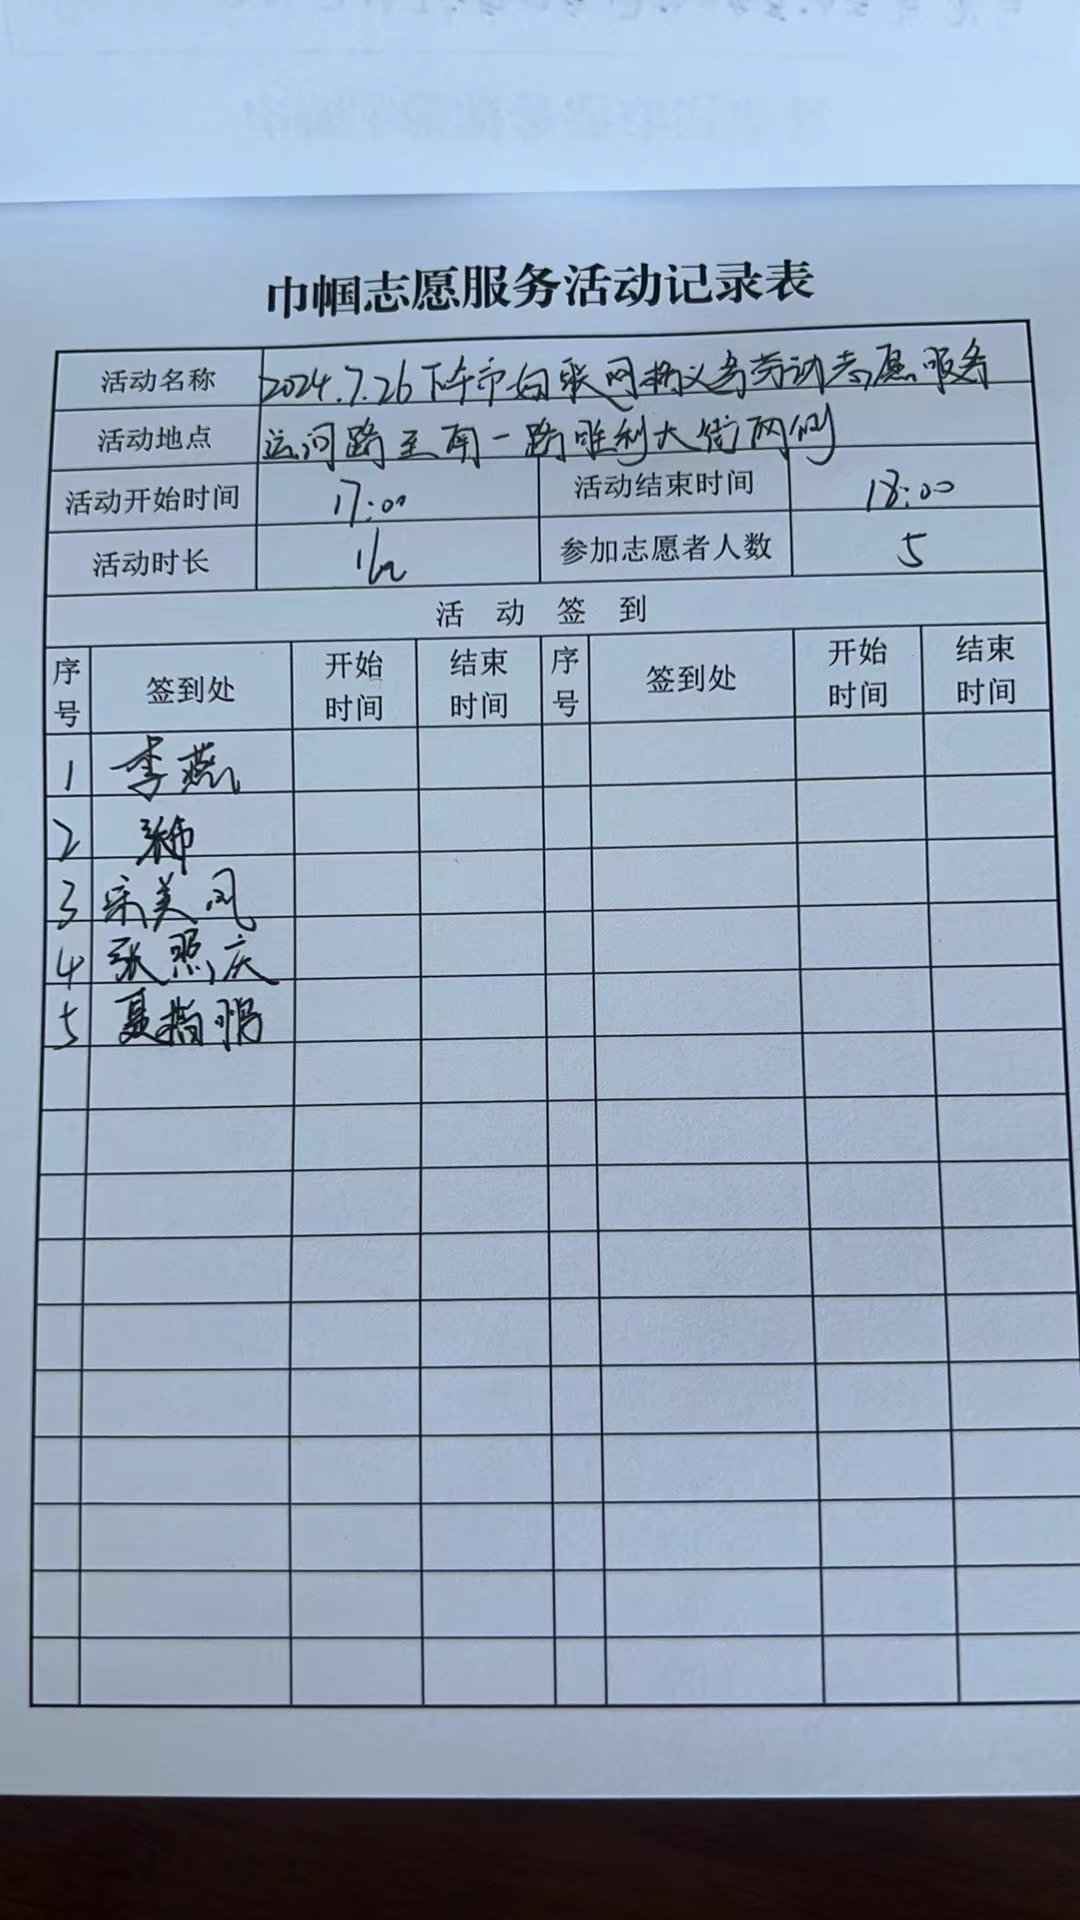 巾帼志愿服务活动记录表
活动名称 2024.7.26下午市妇联网格义务劳动志愿服务
活动地点 运河路至南一路胜利大街两侧
活动开始时间 17:00 活动结束时间 18:00
活动时长 1h 参加志愿者人数 5
活动签到
序号 签到处 开始时间 结束时间 序号 签到处 开始时间 结束时间
1 李燕
2
3 宋美凤
4 张照庆
5 聂鹏